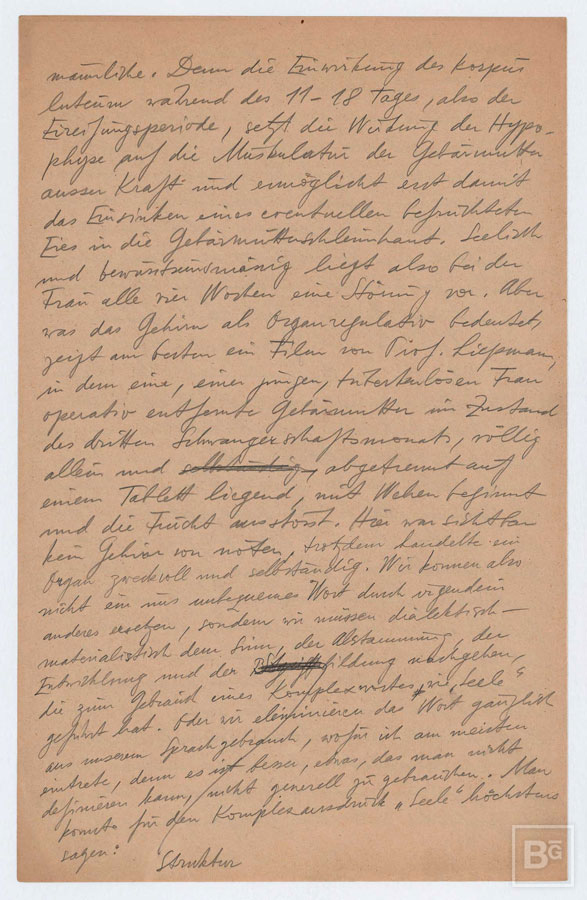 männliche. Denn die Einwirkung des Korpus
luteum während des 11-18 Tages, also der
Eireifungsperiode, setzt die Wirkung der Hypo-
physe auf die Muskulatur der Gebärmutter
ausser Kraft und ermöglicht erst damit
das Einsinken eines eventuellen befruchteten
Eies in die Gebärmutterschleimhaut. Seelisch
und bewusstseinsmässig liegt also bei der
Frau alle vier Wochen eine Störung vor. Aber
was das Gehirn als Organregulativ bedeutet,
zeigt am besten ein Film von Prof. Liepmann,
in dem eine, einer jungen, tuberkulösen Frau
operativ entfernte Gebärmutter im Zustand
des dritten Schwangerschaftsmonats, völlig
allein und selbständig, abgetrennt auf
einem Tablett liegend, mit Wehen beginnt
und die Frucht ausstösst. Hier war sichtbar
kein Gehirn von nöten, trotzdem handelte ein
Organ zweckvoll und selbständig. Wir können also
nicht ein uns unbequemes Wort durch irgendein
anderes ersetzen, sondern wir müssen dialektisch-
materialistisch dem Sinn, der Abstammung, der
Entwicklung und der Bildung nachgehen,
die zum Gebrauch eines Komplexwortes, wie „Seele“
geführt hat. Oder wir eleminieren das Wort gänzlich
aus unserem Sprachgebrauch, wofür ich am meisten
eintrete, denn es ist besser, etwas, das man nicht
definieren kann, nicht generell zu gebrauchen. Man
könnte für den Komplexausdruck „Seele“ höchstens
sagen:
Struktur
BG